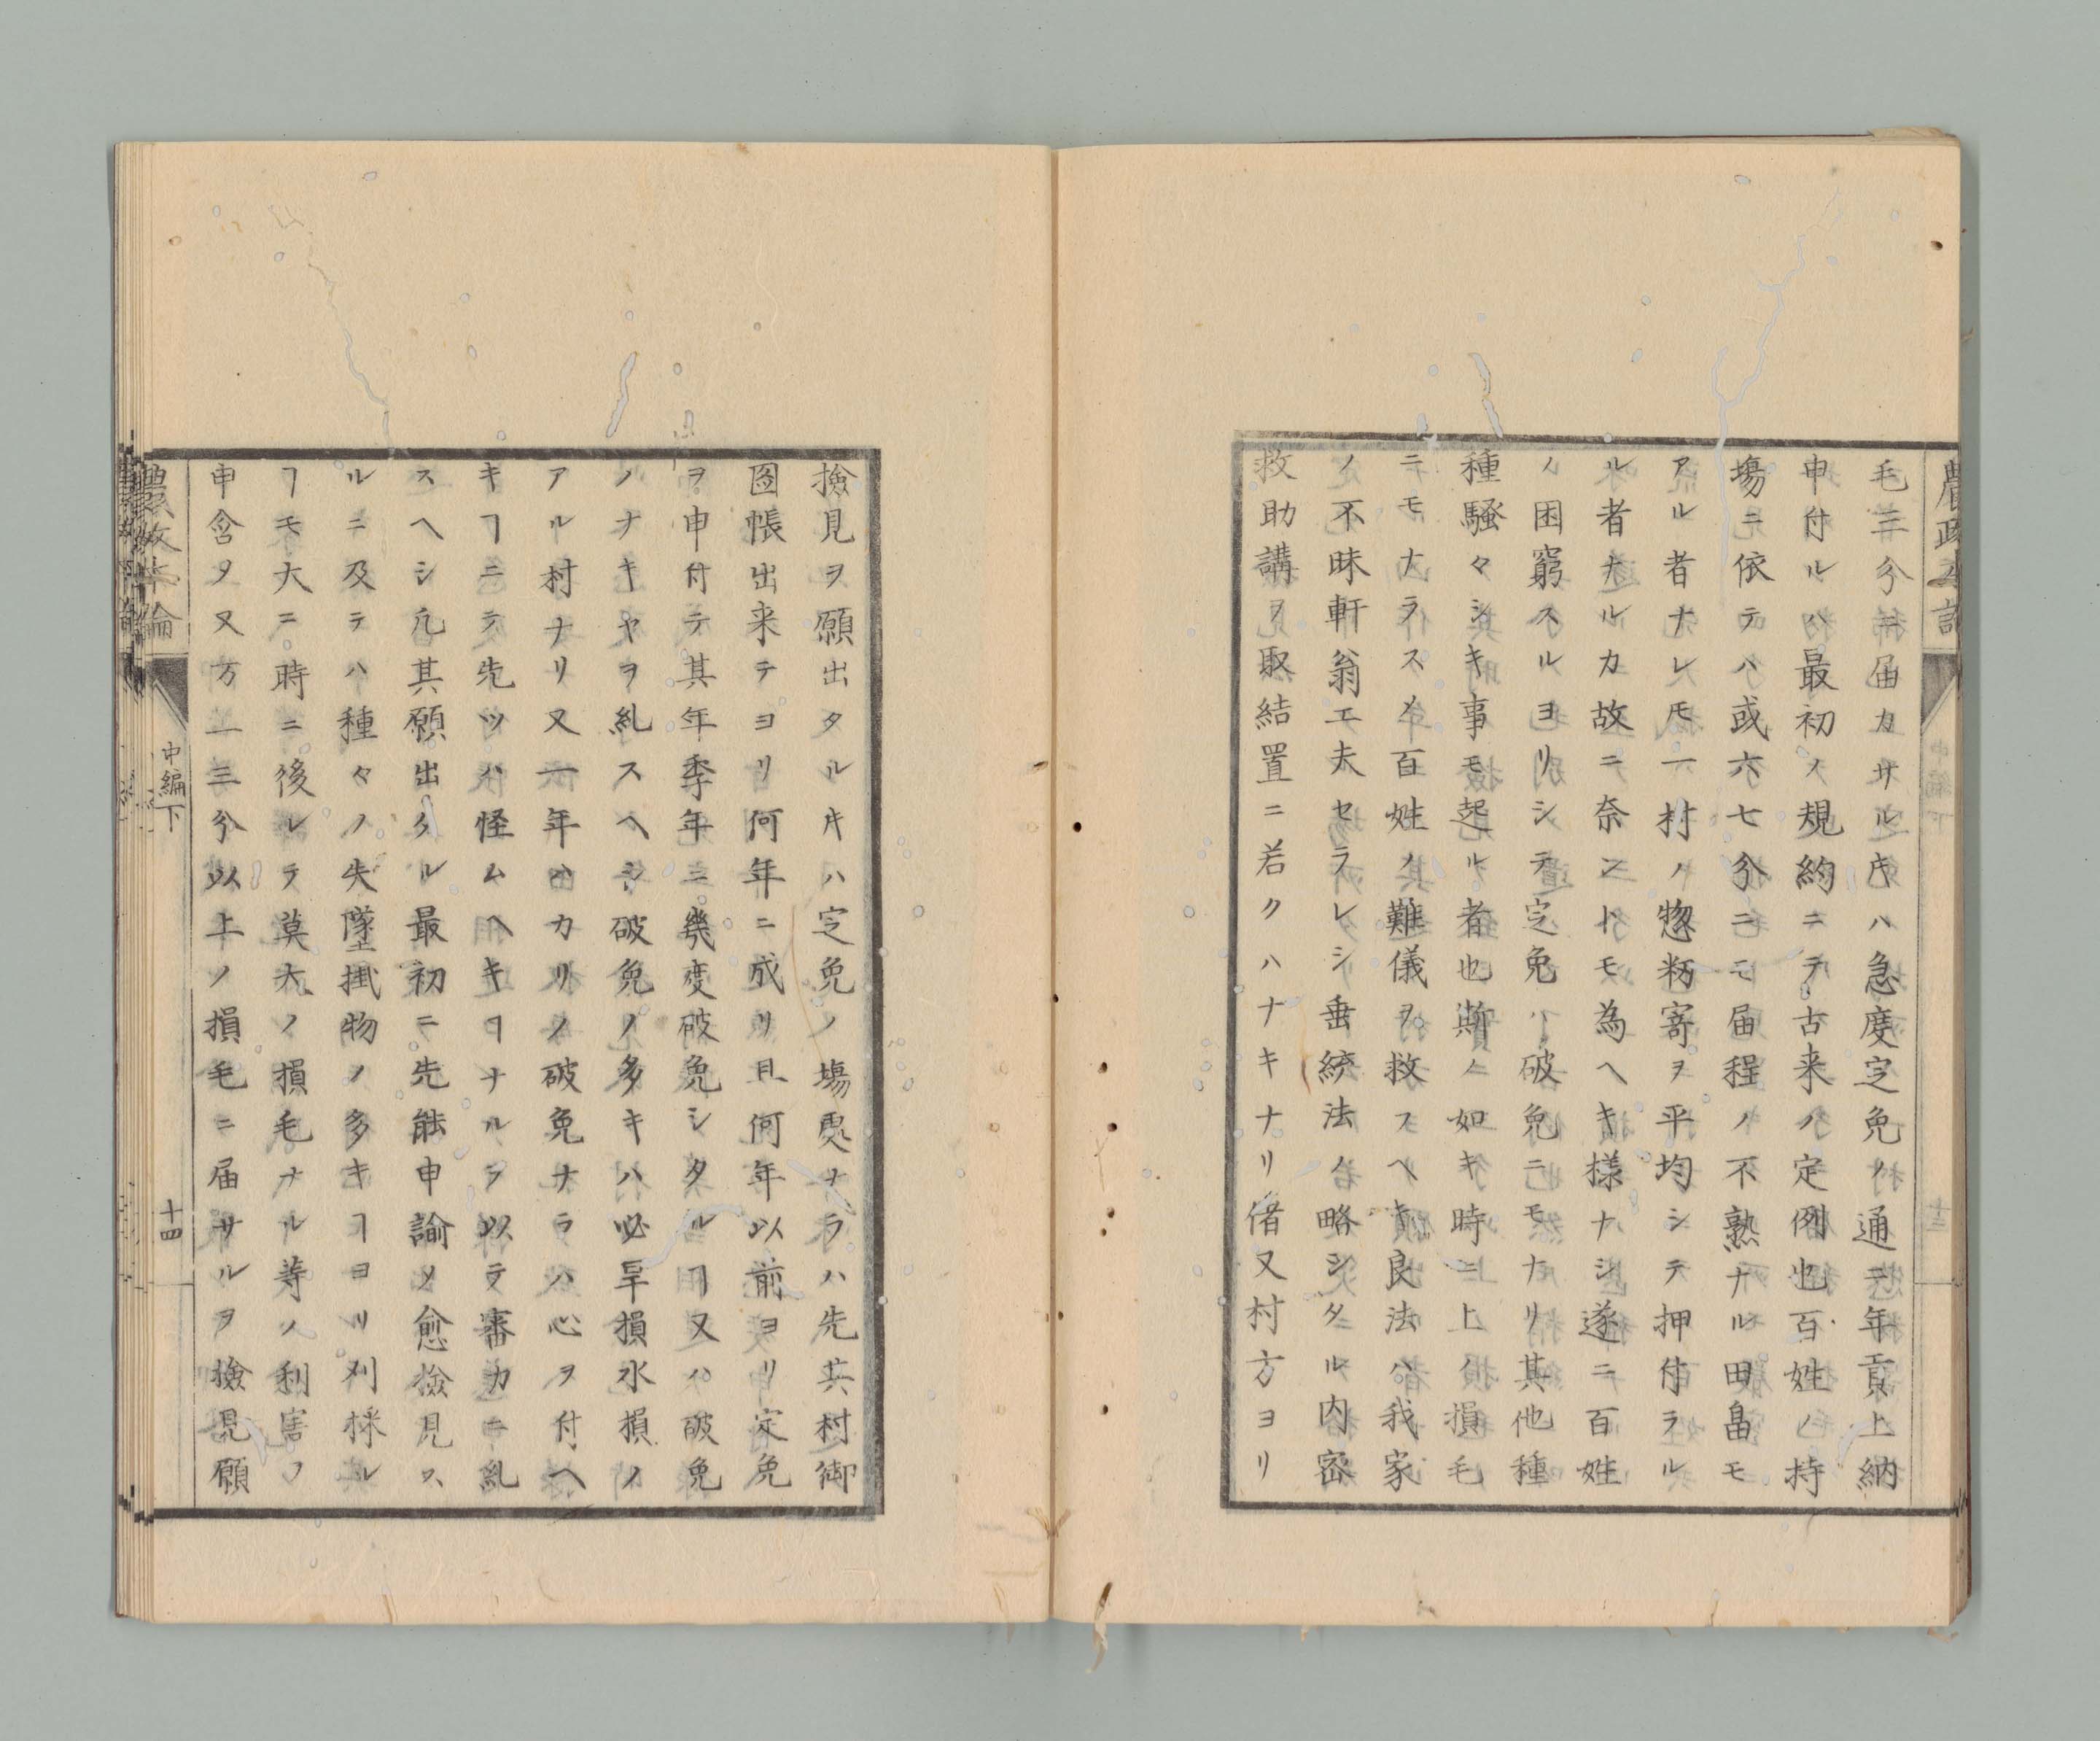 毛三分ニ届カサル𪜈ハ急度定免ノ通ニ年貢上納
申付ルハ最初ノ規約ニテ古来ノ定例也百姓ノ持
場ニ依テハ或六七分ニモ届程ノ不熟ナル田畠モ
アル者ナレ𪜈一村ノ惣籾寄ヲ平均シテ押付ラル
ル者ナルカ故ニ奈ントモ為ヘキ様ナシ遂ニ百姓
ノ困窮スルヨリシテ定免ハ破免ニモナリ其他種
種騒々シキ事モ起ル者也斯ノ如キ時ニ上ノ損毛
ニモナラスメ百姓ノ難儀ヲ救スヘキ良法ハ我家
ノ不昧軒翁工夫セラレシ垂統法ノ略シタル内密
救助講ヲ取結置ニ若クハナキナリ偖又村方ヨリ
農政本論
撿見ヲ願出タルキハ定免ノ場処ナラハ先其村御
図帳出来テヨリ何年ニ成リ且何年以前ヨリ定免
ヲ申付テ其年季年ニ幾度破免シタルヿ又ハ破免
ノナキヤヲ糺スヘシ破免ノ多キハ必旱損水損ノ
アル村ナリ又一年ハカリノ破免ナラハ心ヲ付ヘ
キヿニテ先ツハ怪ムヘキヿナルヲ以テ審カニ糺
スヘシ凡其願出タル最初ニ先能申諭メ愈撿見ス
ルニ及テハ種々ノ失墜掛物ノ多キヿヨリ刈採ル
ヿモ大ニ時ニ後レテ莫大ノ損毛ナル等ノ利害ノ
申含タ又方一三分以上ノ損毛ニ届サルヲ撿見願
農政本論
中編下
十四